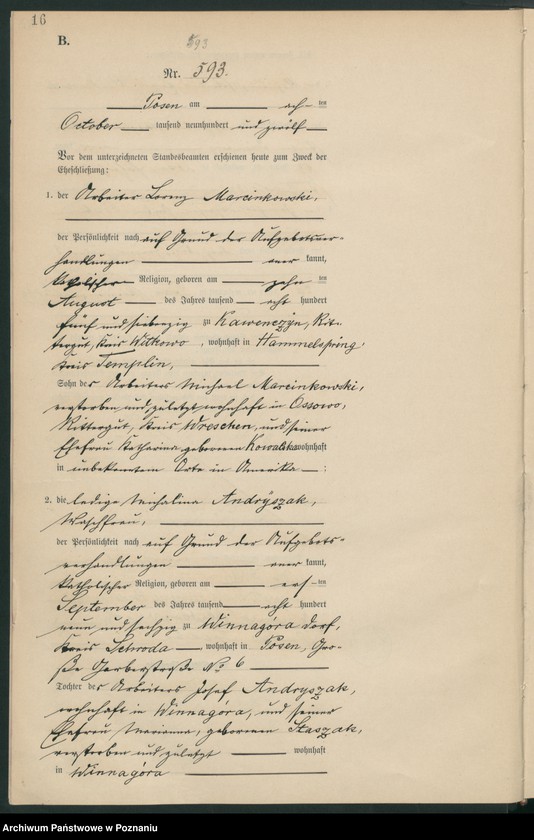 16
B.
593
Nr. 593.
Posen am ach ten
October tausend neunhundert und zwölf
Vor dem unterzeichneten Standesbeamten erschienen heute zum Zweck der
Eheschließung:
1. der Arbeiter Lorenz Marcinkowski,
der Persönlichkeit nach auf Grund der Aufgebotsver-
handlungen aner kannt,
katholischer Religion, geboren am zehn ten
August des Jahres tausend acht hundert
fünf und siebenzig zu Kawenczyn, Rit-
tergut, Kreis Witkowo, wohnhaft in Hammelspring,
Kreis Templin,
Sohn des Arbeiters Michael Marcinkowski,
verstorben und zuletzt wohnhaft in Ossowo,
Rittergut, Kreis Wreschen, und seiner
Ehefrau Katharina geborenen wohnhaft
in unbekanntem Orte in Amerika :
2. die ledige Michalina Andryszak,
Waschfrau,
der Persönlichkeit nach auf Grund der Aufgebots-
verhandlungen aner kannt,
katholischer Religion, geboren am ers ten
September des Jahres tausend acht hundert
neun und sechzig zu Winnagóra Dorf,
Kreis Schroda wohnhaft in Posen, Gro-
ße Gerberstraße No 6
Tochter des Arbeiters Josef Andryszak,
wohnhaft in Winnagóra, und seiner
Ehefrau Marianna, geborenen Staszak,
verstorben und zuletzt wohnhaft
in Winnagóra
Archiwum Państwowe w Poznaniu